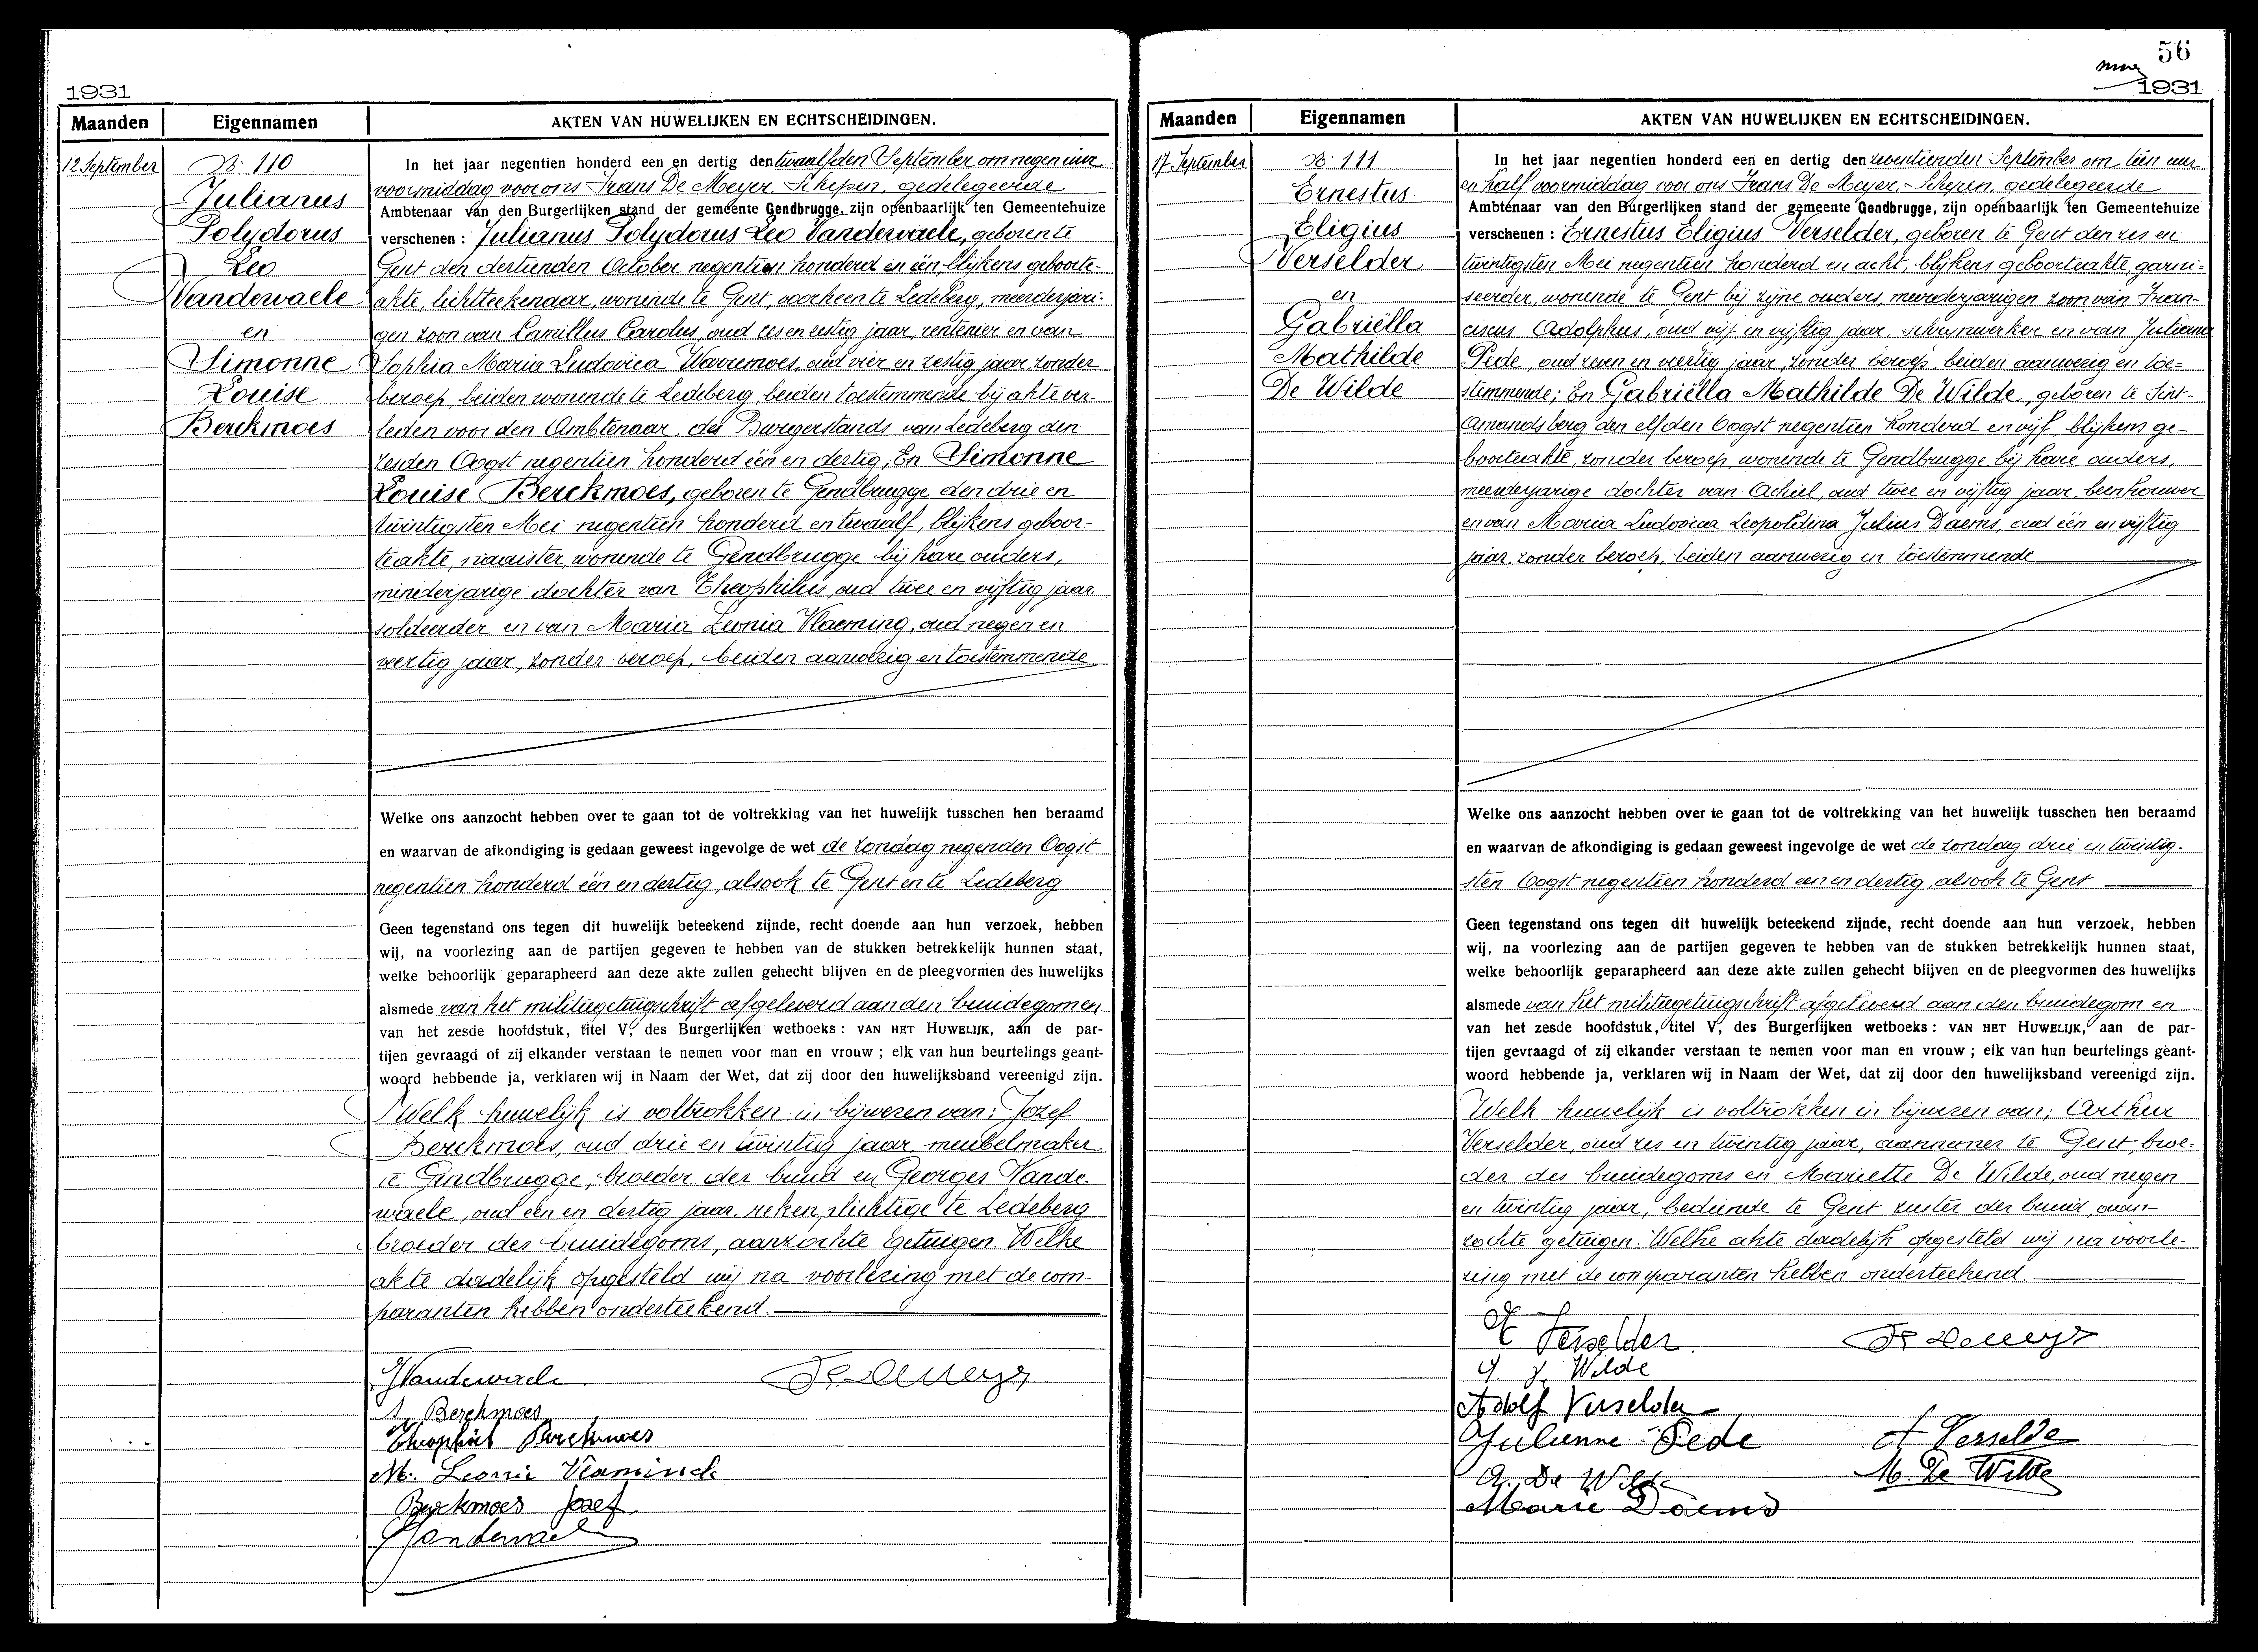 1931
Maanden Eigennamen AKTEN VAN HUWELIJKEN EN ECHTSCHEIDINGEN.
12 September
N. 110
Julianus
Polydorus
Leo
Vandewaele
en
Simonne
Louise
Berckmoes
In het jaar negentien honderd een en dertig den twaalfden September om negen uur
voormiddag voor ons Frans De Meyer, Schepen, gedelegeerde
Ambtenaar van den Burgerlijken stand der gemeente Gendbrugge, zijn openbaarlijk ten Gemeentehuize
verschenen : Julianus Polydorus Leo Vandewaele, geboren te
Gent den dertienden October negentien honderd en één blijkens geboorte-
akte, lichtteekenaar, wonende te Gent, voorheen te Ledeberg, meerderjari-
gen zoon van Camillus Carolus, oud zes en zestig jaar, rentenier en van
Sophia Maria Ludovica Warremoes, oud vier en zestig jaar zonder
beroep, beiden wonende te Ledeberg, beiden toestemmende bij akte ver-
leden voor den Ambtenaar des Burgerstands van Ledeberg den
zesden Oogst negentien honderd één en dertig; En Simonne
Louise Berckmoes, geboren te Gendbrugge den drie en
twintigsten Mei negentien honderd en twaalf, blijkens geboor-
teakte, naaister, wonende te Gendbrugge bij hare ouders,
minderjarige dochter van Theophilus, oud twee en vijftig jaar
soldeerder en van Maria Leonia Vlaeming, oud negen en
veertig jaar, zonder beroep, beiden aanwezig en toestemmende
Welke ons aanzocht hebben over te gaan tot de voltrekking van het huwelijk tusschen hen beraamd
en waarvan de afkondiging is gedaan geweest ingevolge de wet de zondag negenden Oogst
negentien honderd één en dertig, alsook te Gent en te Ledeberg
Geen tegenstand ons tegen dit huwelijk beteekend zijnde, recht doende aan hun verzoek, hebben
wij, na voorlezing aan de partijen gegeven te hebben van de stukken betrekkelijk hunnen staat,
welke behoorlijk geparapheerd aan deze akte zullen gehecht blijven en de pleegvormen des huwelijks
alsmede van het militiegetuigschrift afgeleverd aan den bruidegom en
van het zesde hoofdstuk, titel V, des Burgerlijken wetboeks : VAN HET HUWELIJK, aan de par-
tijen gevraagd of zij elkander verstaan te nemen voor man en vrouw ; elk van hun beurtelings geant-
woord hebbende ja, verklaren wij in Naam der Wet, dat zij door den huwelijksband vereenigd zijn.
Welk huwelijk is voltrokken in bijwezen van: Jozef
Berckmoes, oud drie en twintig jaar, meubelmaker
te Gendbrugge, broeder der bruid en Georges Vande-
waele, oud één en dertig jaar, rekenplichtige te Ledeberg
broeder des bruidegoms, aanzochte getuigen. Welke
akte dadelijk opgesteld wij na voorlezing met de com-
paranten hebben onderteekend.
JVandewaele Fr. Demeyer
S. Berckmoes
Theophiel Berckmoes
M. Leonie Vlaminck
Berckmoes Jozef
GVandewaele
56
1931
Maanden Eigennamen AKTEN VAN HUWELIJKEN EN ECHTSCHEIDINGEN.
17 September
N. 111
Ernestus
Eligius
Verselder
en
Gabriëlla
Mathilde
De Wilde
In het jaar negentien honderd een en dertig den zeventienden September om tien uur
en half voormiddag voor ons Frans De Meyer, Schepen, gedelegeerde
Ambtenaar van den Burgerlijken stand der gemeente Gendbrugge, zijn openbaarlijk ten Gemeentehuize
verschenen : Ernestus Eligius Verselder, geboren te Gent den zes en
twintigsten Mei negentien honderd en acht, blijkens geboorteakte, garni-
seerder, wonende te Gent bij zijne ouders, meerderjarigen zoon van Fran-
ciscus Adolphus, oud vijf en vijftig jaar, schrijnwerker en van Juliana
Pede, oud zeven en veertig jaar, zonder beroep, beiden aanwezig en toe-
stemmende; En Gabriëlla Mathilde De Wilde, geboren te Sint-
Amandsberg den elfden Oogst negentien honderd en vijf blijkens ge-
boorteakte, zonder beroep, wonende te Gendbrugge bij hare ouders,
meerderjarige dochter van Achiel, oud twee en vijftig jaar, beenhouwer
en van Maria Ludovica Leopoldina Julius Daems, oud één en vijftig
jaar, zonder beroep, beiden aanwezig en toestemmende
Welke ons aanzocht hebben over te gaan tot de voltrekking van het huwelijk tusschen hen beraamd
en waarvan de afkondiging is gedaan geweest ingevolge de wet de zondag drie en twintig-
sten Oogst negentien honderd een en dertig, alsook te Gent
Geen tegenstand ons tegen dit huwelijk beteekend zijnde, recht doende aan hun verzoek, hebben
wij, na voorlezing aan de partijen gegeven te hebben van de stukken betrekkelijk hunnen staat,
welke behoorlijk geparapheerd aan deze akte zullen gehecht blijven en de pleegvormen des huwelijks
alsmede van het militiegetuigschrift afgeleverd aan den bruidegom en
van het zesde hoofdstuk, titel V, des Burgerlijken wetboeks : VAN HET HUWELIJK, aan de par-
tijen gevraagd of zij elkander verstaan te nemen voor man en vrouw ; elk van hun beurtelings geant-
woord hebbende ja, verklaren wij in Naam der Wet, dat zij door den huwelijksband vereenigd zijn.
Welk huwelijk is voltrokken in bijwezen van; Arthur
Verselder, oud zes en twintig jaar, aannemer te Gent, broe-
der des bruidegoms en Mariette De Wilde, oud negen
en twintig jaar, bediende te Gent zuster der bruid, aan-
zochte getuigen. Welke akte dadelijk opgesteld wij na voorle-
zing met de comparanten hebben onderteekend.
E Verselder Fr Demeyer
G. De Wilde
Adolf Verselder
Julienne Pede A Verselde
A. De Wilde M. De Wilde
Marie Daems